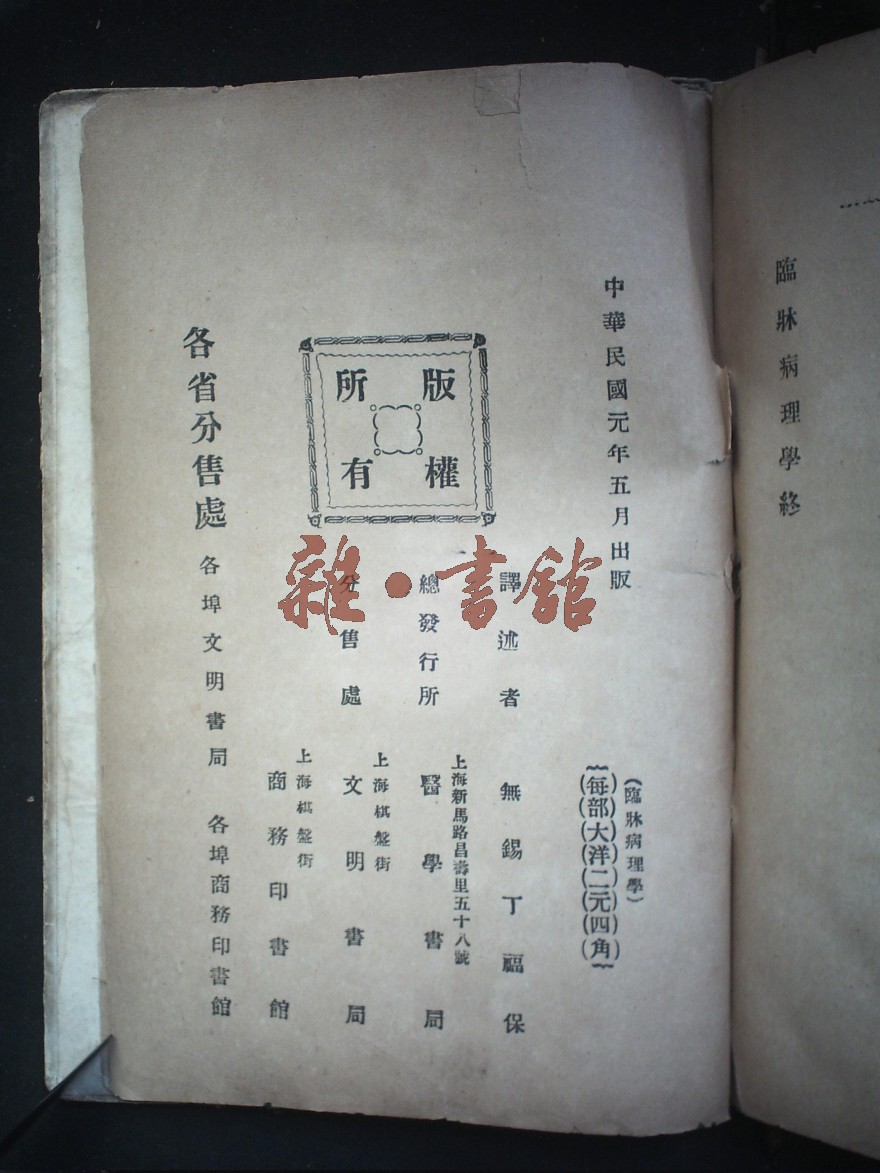 臨牀病理學終
中華民國元年五月出版
(臨牀病理學)
(每)(部)(大)(洋)(二)(元)(四)(角)
譯述者 無錫丁福保
上海新馬路昌壽里五十八號
總發行所 醫學書局
上海棋盤街
分售處 文明書局
上海棋盤街
商務印書館
版權
所有
各省分售處 各埠文明書局 各埠商務印書館
雜·書館